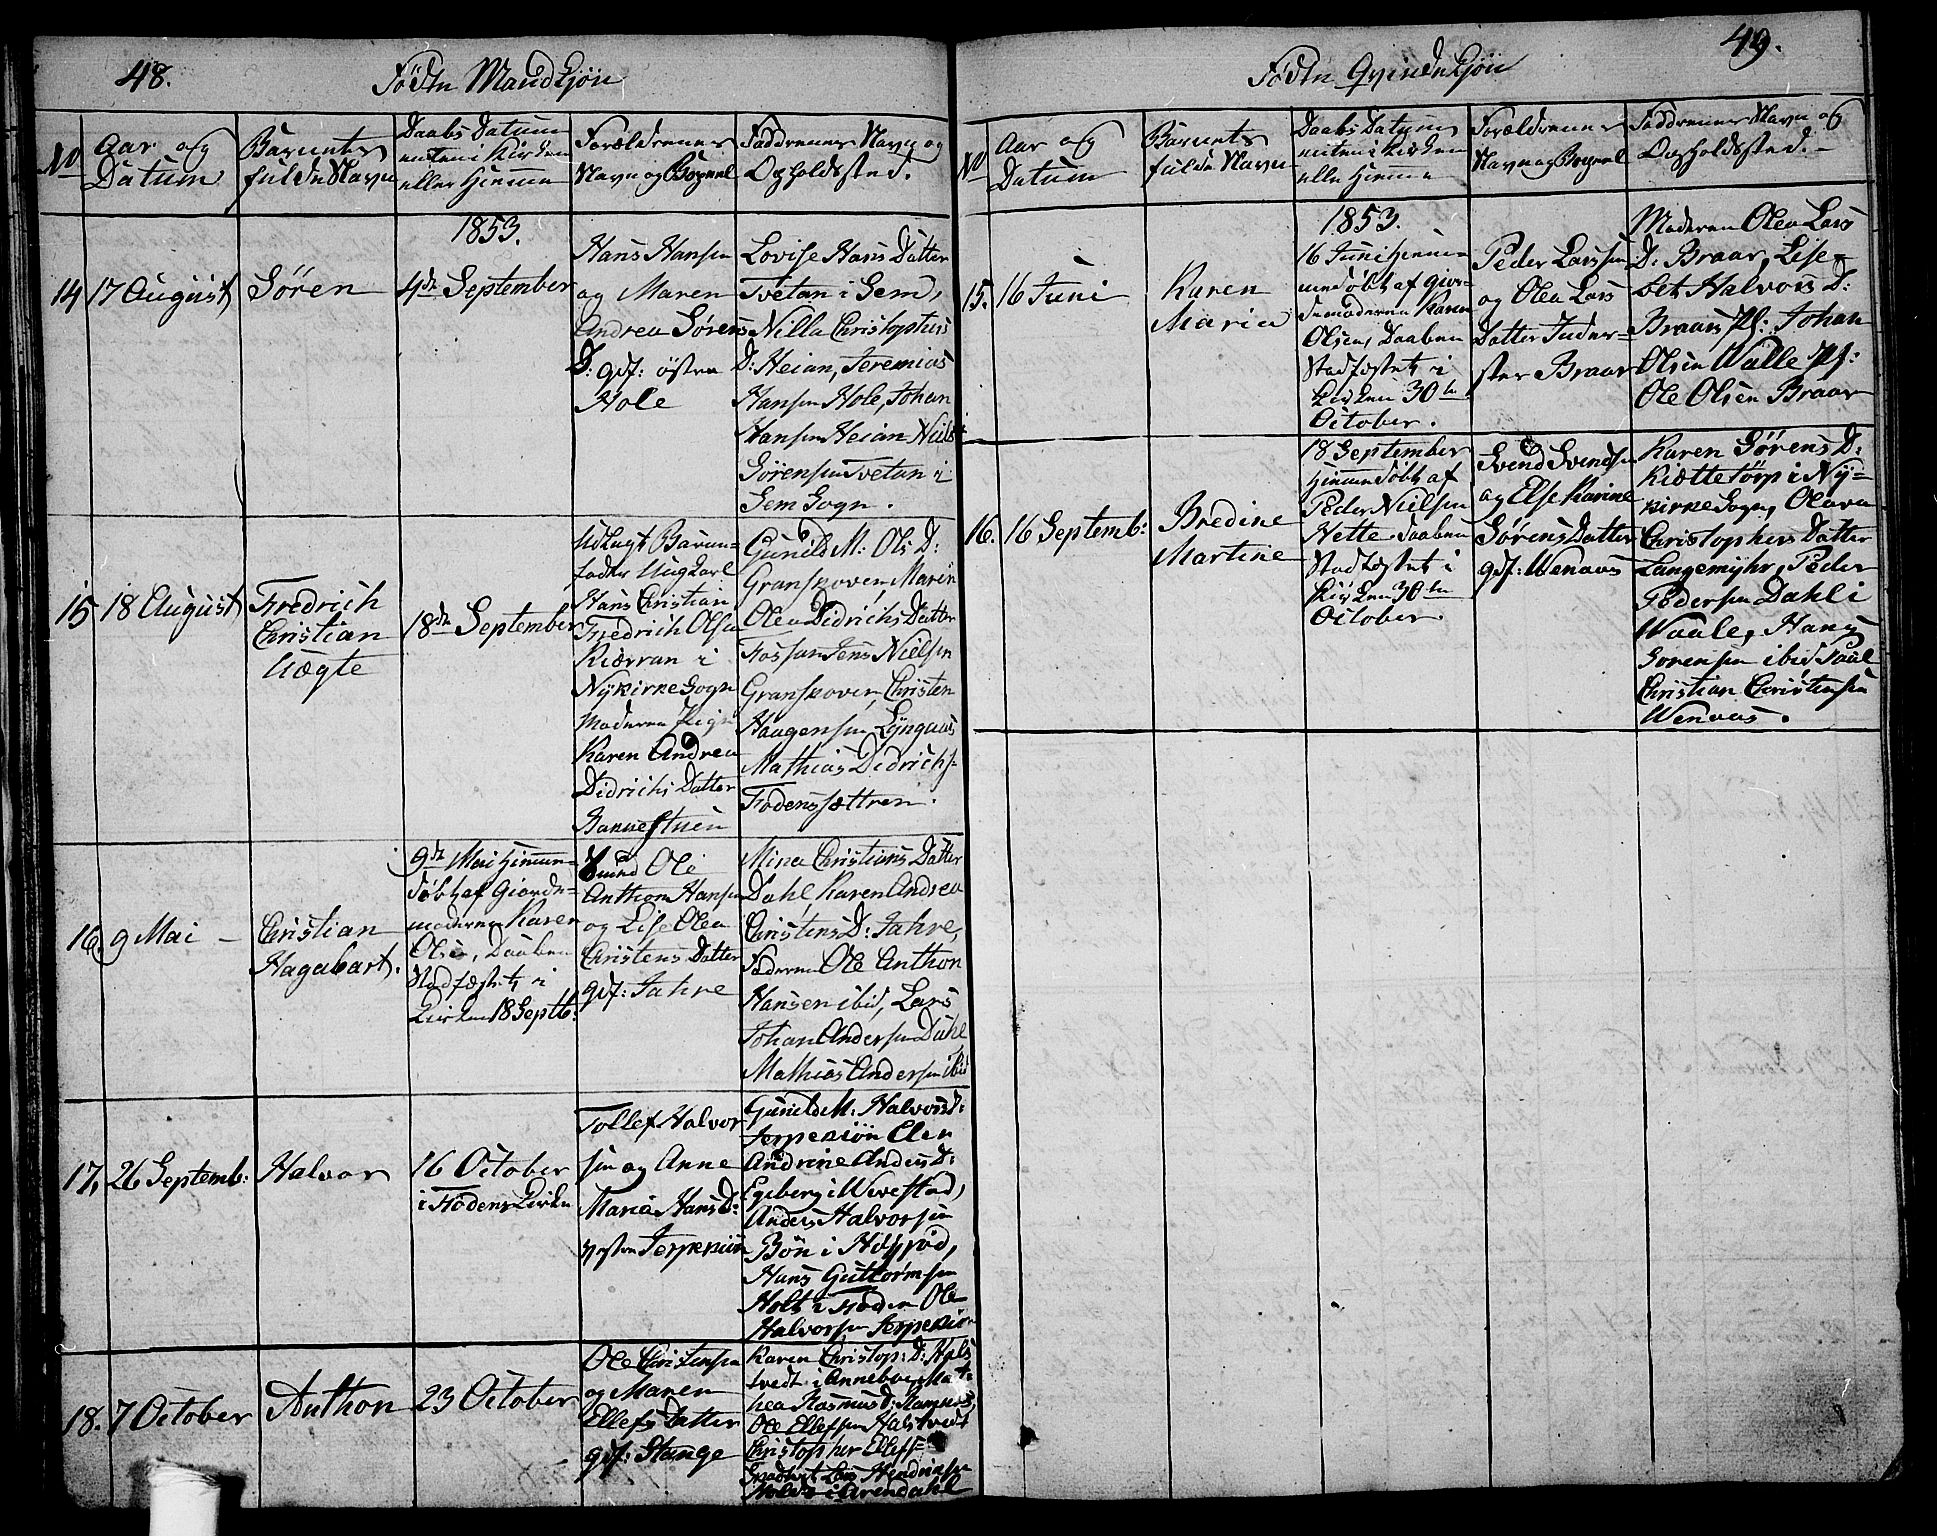 48.
Fødte Mandkjøn
No
Aar og
Datum
Barnets
fulde Navn
Daabs Datum
enten i Kirken
eller Hjemme
Forældrenes
Navn og Bopæl
Faddrenes Navn og
Opholdssted.
14
17 August
Søren
1853.
4de September
Hans Hansen
og Maren
Andrea Sørens
D: gdf: østre
Hole
Lovise Hans Datter
Tvetan i Sem,
Nilla Christophers
D: Heian, Jeremias
Hansen Hole, Johan
Hansen Heian Niels
Sørensen Tvetan i
Sem Sogn.
15
18 August
Fredrich
Christian
Uægte
18de September
Udlagt Barne-
fader Ungkarl
Hans Christian
Fredrich Olsen
Kiærran i
Nÿkirke Sogn
Moderen Pige
Karen Andrea
Didrichs Datter
Gunild M: Ols D:
Granskoven, Maren
Olea Didrichs Datter
Fossan Jens Nielsen
Granskoven, Christen
Haagensen Lÿngaas
Mathias Didrichs-
Fodenssættren.
16.
9 Mai –
Christian
Hagabart.
9de Mai Hjemme-
døbt af Giorde-
moderen Karen
Olsen, Daaben
Stadfæstet i
Kirken 18 Septb:
Ole
Anthon Hansen
og Lise Olea
Christens Datter
gdf: Jahre
Mina Christians Datter
Dahl Karen Andrea
Christens D: Jahre,
Faderen Ole Anthon
Hansen ibid, Lars
Johan Andersen Dahl
Mathias Andersen ibid
17,
26 Septemb:
Halvor
16 October
i Fodens Kirke
Tollef Halvor
sen og Anne
Maria Hans D:
Jerpekiøn
Gunild M: Halvors D:
Jerpekiøn Elen
Andrine Anders D:
Egeberg i Wivestad,
Anders Halvorsen
Bøn i
Hans Guttormsen
Holt i Foden Ole
Halvorsen Jerpekiøn
18.
7 October
Anthon
23 October
Ole Christensen
og Maren
Ellefs Datter
gdf: Stange
Karen Christop: D: Hals
tvedt i Anneboe, Mat-
hea Rasmus D: Ramnes,
Ole Ellefsen Halstvedt
Christopher Ellefs-
Lars Hendriksen
i Arendahl
49.
Fødte Qvindekjøn
No
Aar og
Datum
Barnets
fulde Navn
Daabs Datum
enten i Kirken
eller Hjemme
Forældrenes
Navn og Bopæl
Faddrenes Navn og
Opholdssted. –
15.
16 Juni
Karen
Maria
1853.
16 Juni Hjemme
døbt af gior-
demoderen Karen
Olsen, Daaben
Stadfæstet i
Kirken 30te
October.
Peder Larssen
og Olea Lars
Datter Inder-
ster Braar
Moderen Olea Lars
D: Braar, Lise-
bet Halvors D:
Braars Pl: Johan
Olsen Walle Pl:
Ole Olsen Braar
16.
16 Septemb:
Bredine
Martine
18 September
Hjemmedøbt af
Peder Nielsen
Nette Daaben
Stadfæstet i
Kirken 30te
October.
Svend Svendsen
og Else Karine
Sørens Datter
gdf: Wenaas
Karen Sørens D:
Kiættetorp i Nÿ-
kirke Sogn, Olava
Christophers Datter
Langemÿhr, Peder
Pedersen Dahl i
Waale, Hans
Sorensen ibid Paul
Christian Christensen
Wenaas.